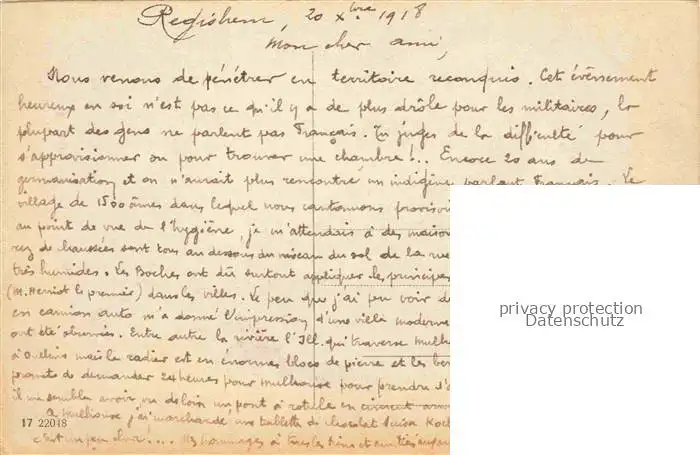 Regisheim, 20 Xbre 1918
Mon cher ami,
Nous venons de pénétrer en territoire reconquis. Cet évènement
heureux en soi n'est pas ce qu'il y a de plus drôle pour les militaires, la
plupart des gens ne parlent pas Français. Tu juges de la difficulté pour
s'approvisionner ou pour trouver une chambre!.. Encore 20 ans de
germanisation et on n'aurait plus rencontré un indigène parlant Français. Le
village de 1500 âmes dans lequel nous cantonnons
au point de vue de l'hygiène, je m'attendais à des
rez de chaussées sont tous au dessous du niveau du sol de la rue
très humides. Les Boches ont dû surtout appliquer les principes
(M. Herriot le premier) dans les villes. Le peu que j'ai pu voir
en camion auto m'a donné l'impression d'une ville moderne
ont été observées. Entre autre la rivière l'Ill qui traverse
à Oullins mais le radier est en énormes blocs de pierre et les
de demander 24 heures pour Mulhouse pour prendre
il me semble avoir vu de loin un pont à rotule en ciment
A Mulhouse j'ai marchandé une tablette de chocolat Suisse
c'est un peu cher!... Mes hommages à
17 22018
privacy protection
Datenschutz